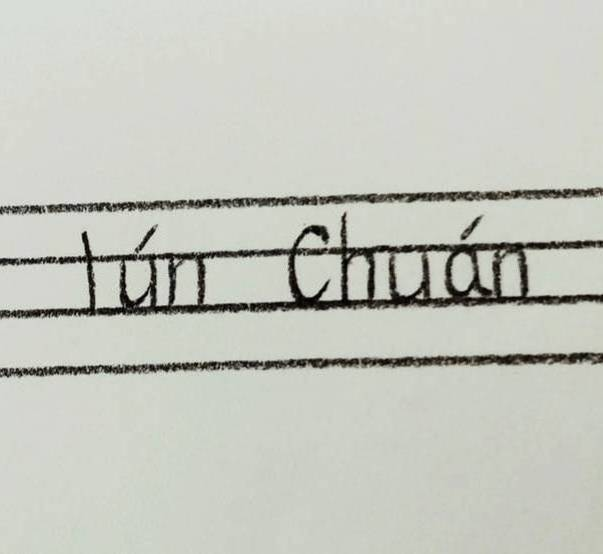 lún Chuán